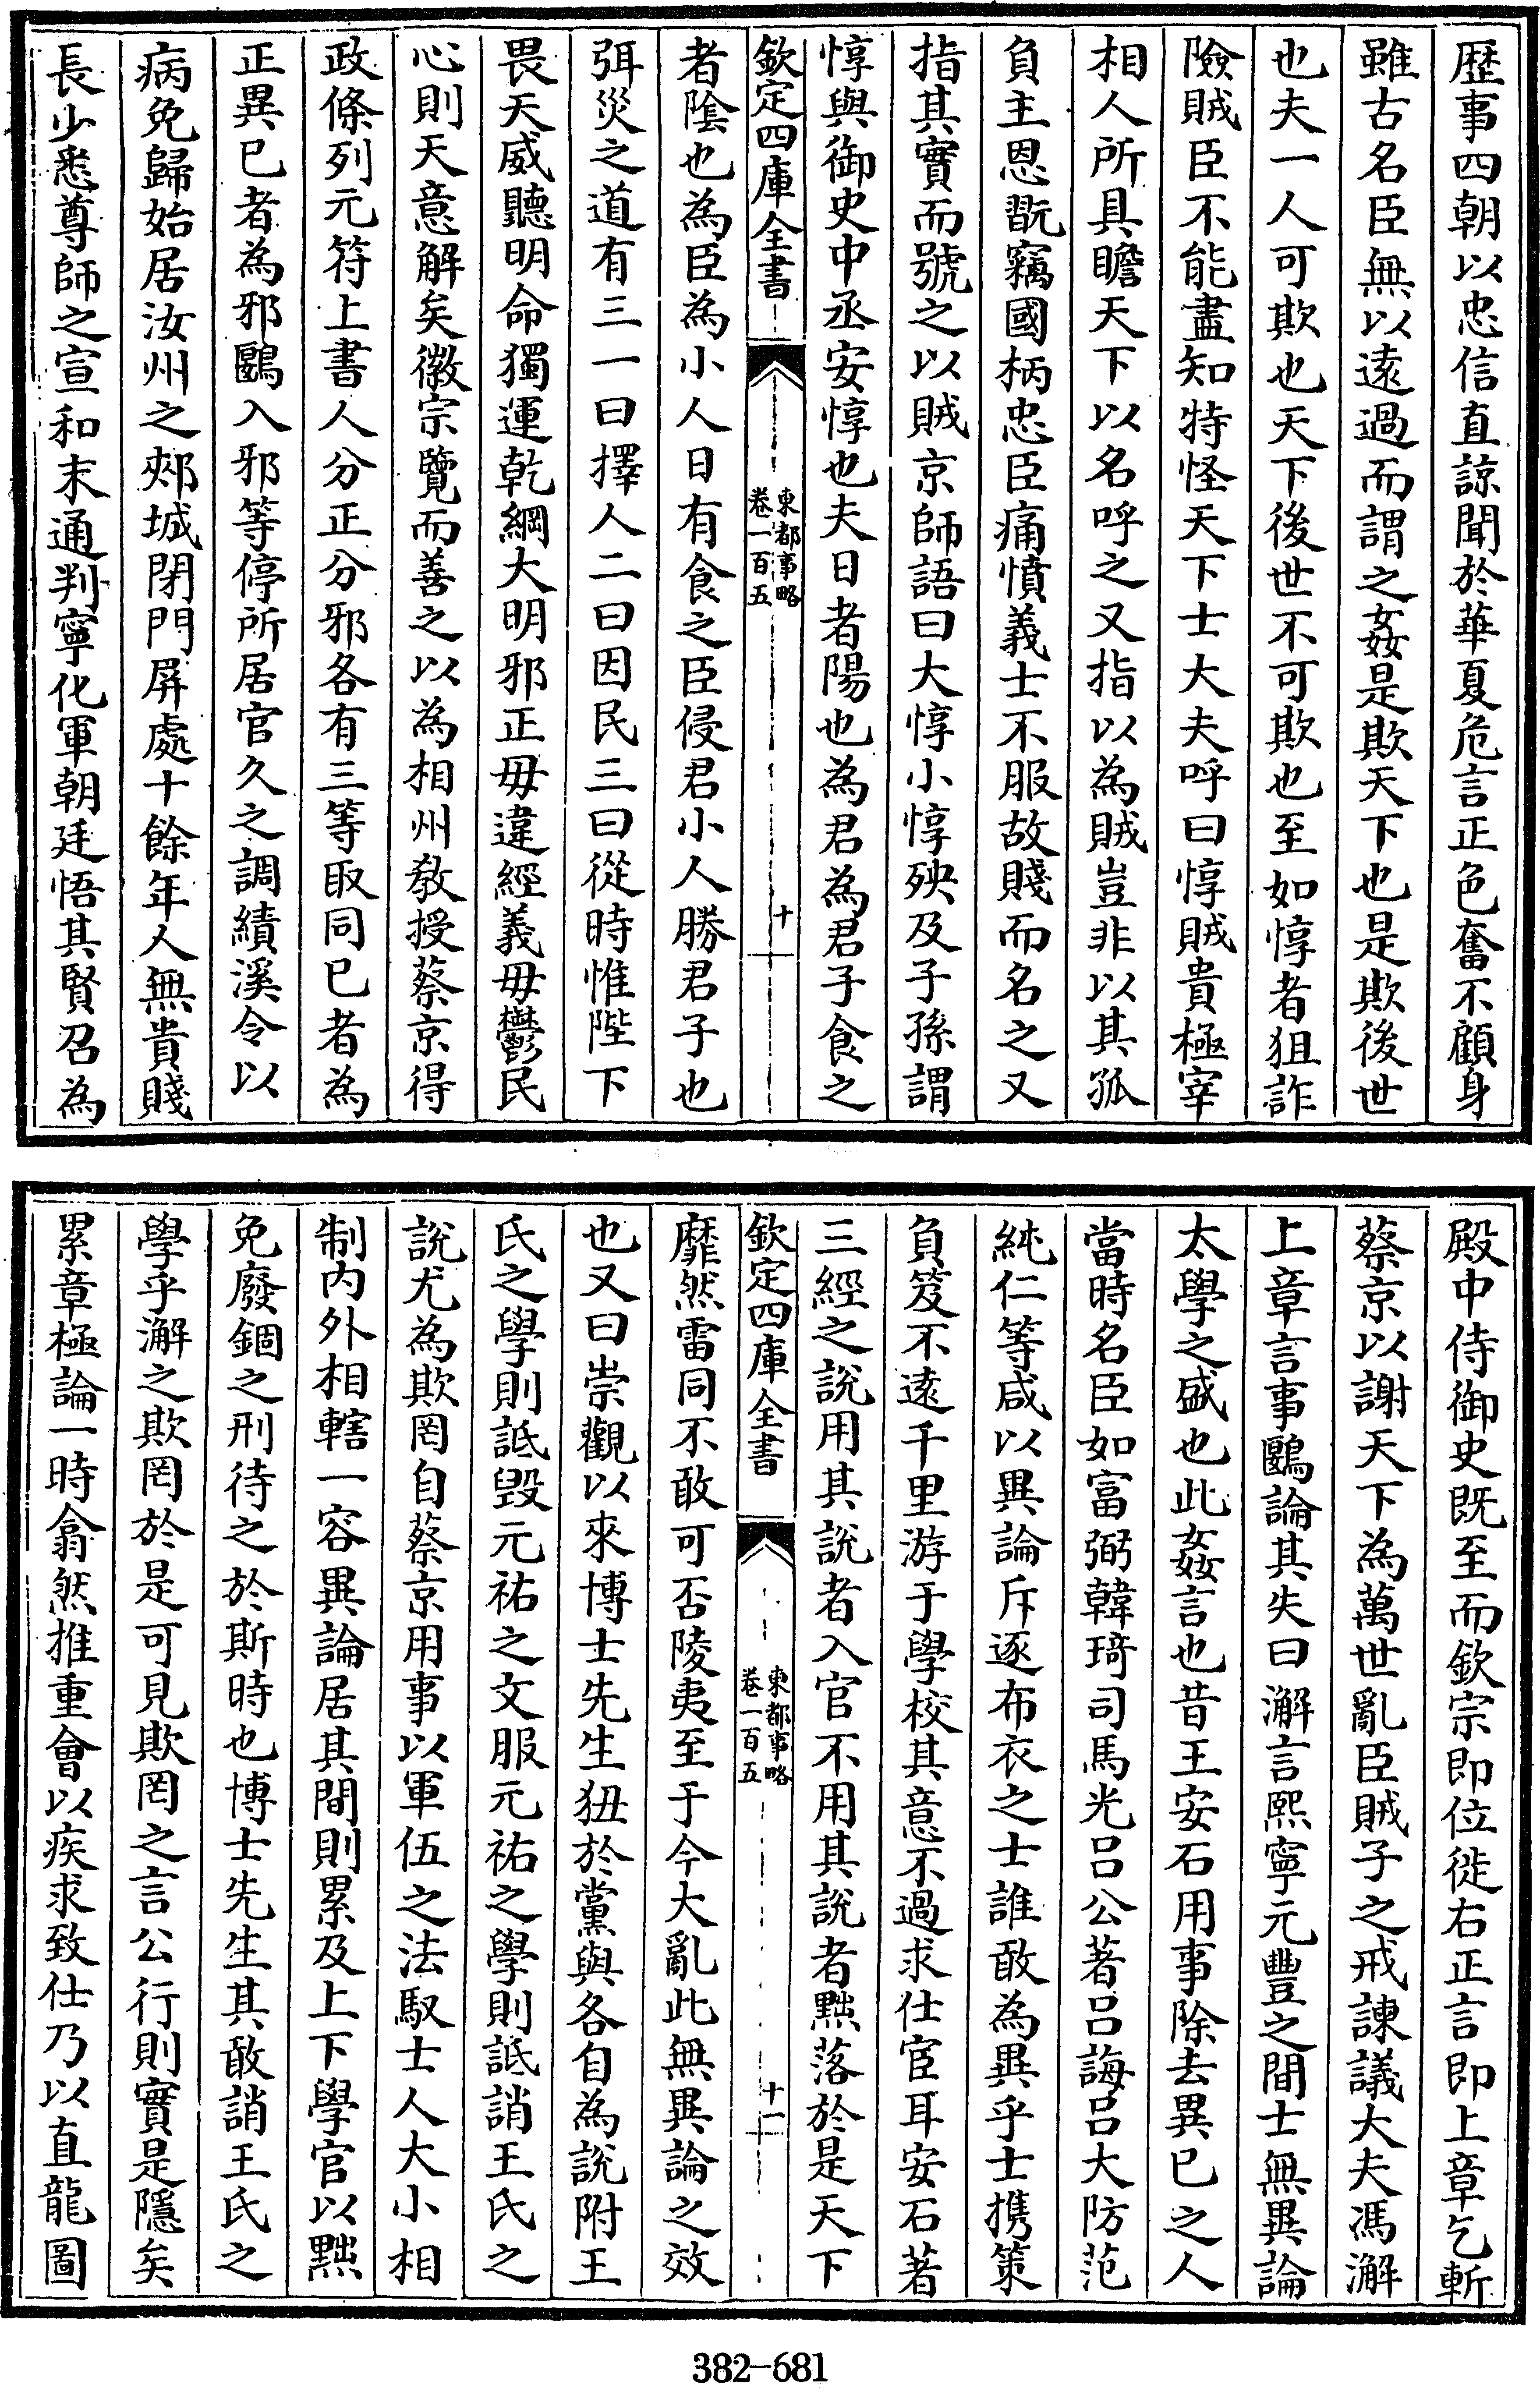 歴事四朝以忠信直諒聞於華夏危言正色奮不顧身
雖古名臣無以遠過而謂之姦是欺天下也是欺後世
也夫一人可欺也天下後世不可欺也至如惇者狙詐
險賊臣不能盡知特怪天下士大夫呼曰惇賊貴極宰
相人所具瞻天下以名呼之又指以為賊豈非以其孤
負主恩翫竊國柄忠臣痛憤義士不服故賤而名之又
指其實而號之以賊京師語曰大惇小惇殃及子孫謂
惇與御史中丞安惇也夫日者陽也為君為君子食之
欽定四庫全書
東都事略
卷一百五
十
者陰也為臣為小人日有食之臣侵君小人勝君子也
弭災之道有三一曰擇人二曰因民三曰從時惟陛下
畏天威聽明命獨運乾綱大明邪正毋違經義毋鬱民
心則天意解矣徽宗覽而善之以為相州教授蔡京得
政條列元符上書人分正分邪各有三等取同已者為
正異已者為邪鷗入邪等停所居官久之調績溪令以
病免歸始居汝州之郟城閉門屏處十餘年人無貴賤
長少悉尊師之宣和末通判寧化軍朝廷悟其賢召為
殿中侍御史既至而欽宗即位徙右正言即上章乞斬
蔡京以謝天下為萬世亂臣賊子之戒諫議大夫馮澥
上章言事鷗論其失曰澥言熙寧元豐之間士無異論
太學之盛也此姦言也昔王安石用事除去異已之人
當時名臣如富弼韓琦司馬光吕公著吕誨吕大防范
純仁等咸以異論斥逐布衣之士誰敢為異乎士攜策
負笈不遠千里游于學校其意不過求仕宦耳安石著
三經之說用其說者入官不用其說者黜落於是天下
欽定四庫全書
東都事略
卷一百五
十一
靡然雷同不敢可否陵夷至于今大亂此無異論之效
也又曰崇觀以來博士先生狃於黨與各自為說附王
氏之學則詆毀元祐之文服元祐之學則詆誚王氏之
說尤為欺罔自蔡京用事以軍伍之法馭士人大小相
制内外相轄一容異論居其間則累及上下學官以黜
免廢錮之刑待之於斯時也博士先生其敢誚王氏之
學乎澥之欺罔於是可見欺罔之言公行則實是隱矣
累章極論一時翕然推重會以疾求致仕乃以直龍圖
382-681